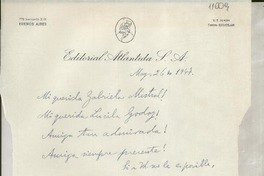 11009
BUENOS AIRES
Editorial Atlántida S. A.
Mayo 26 de 1947.
Mi querida Gabriela Mistral!
Mi querida Lucila Godoy!
Amiga tan admirada!
Amiga siempre presente!
Si a Ud. no le es posible,